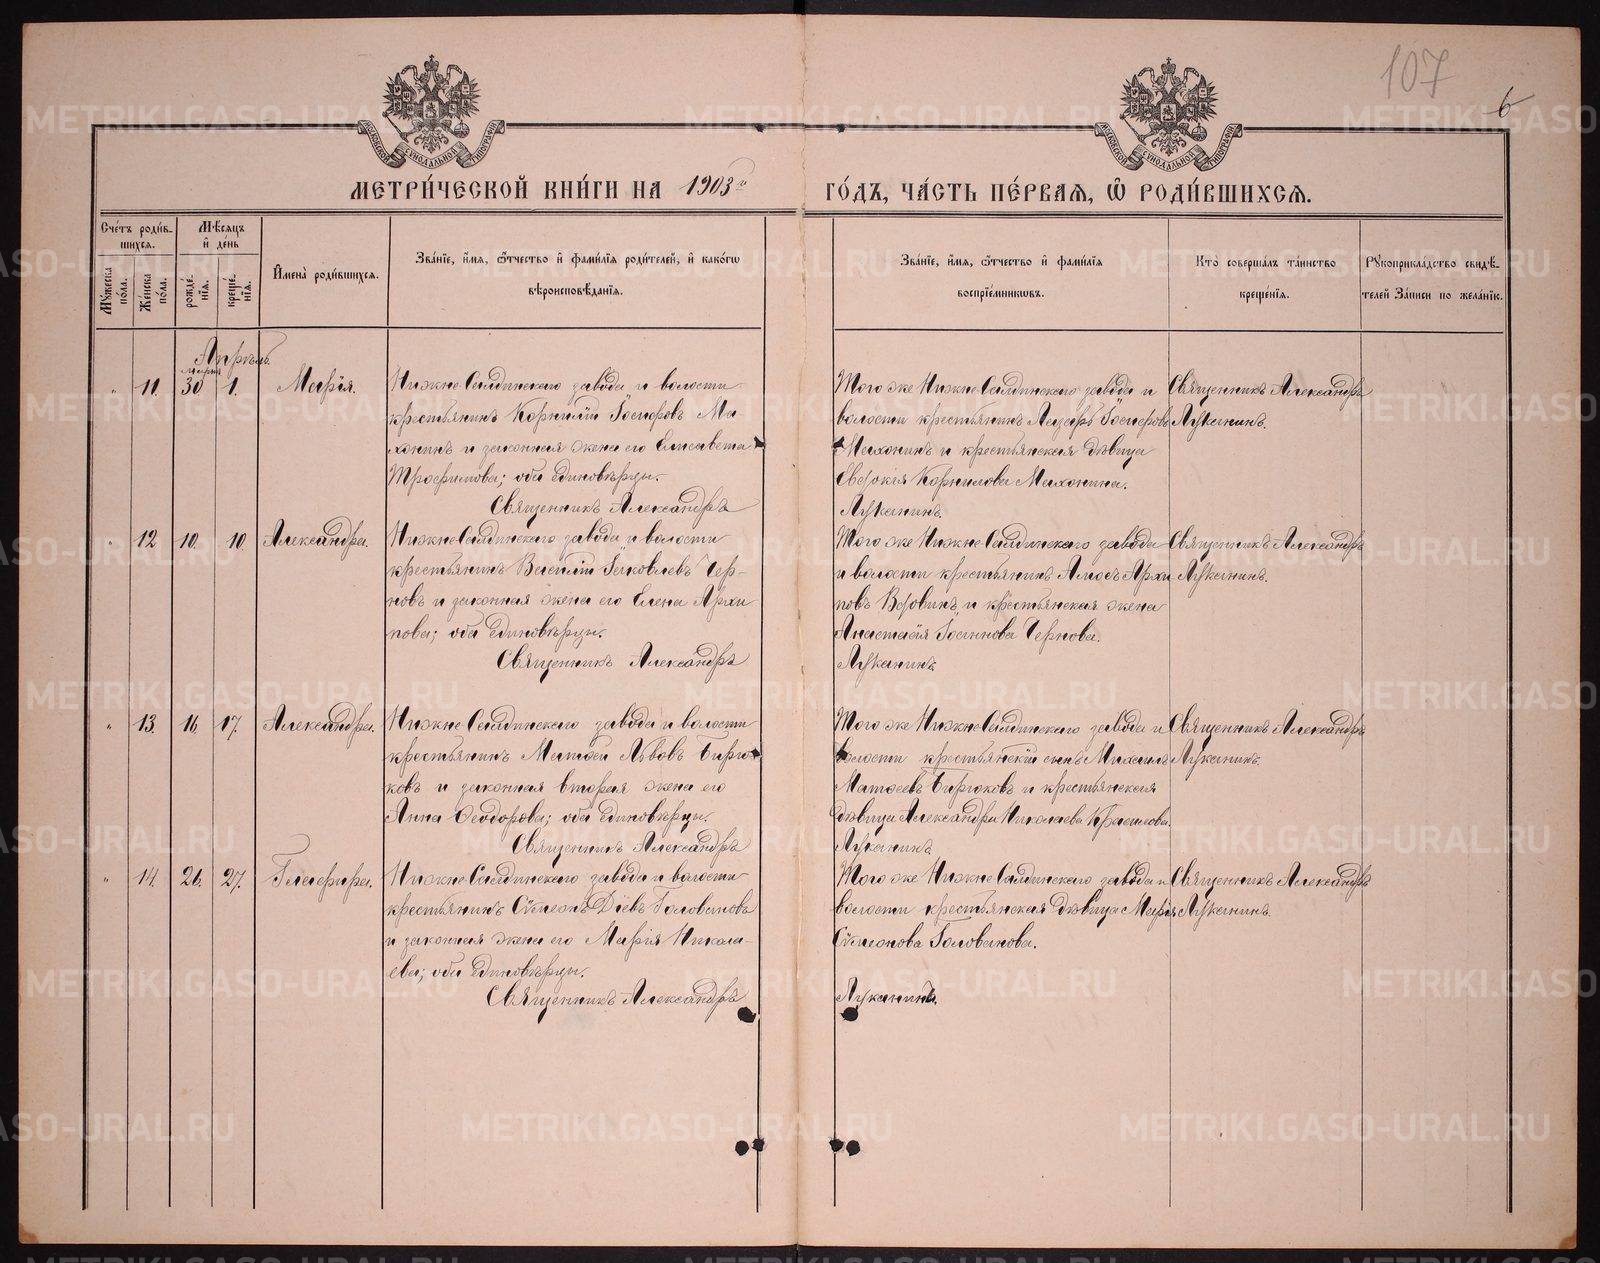 107
6
МОСКОВСКОЙ СѴНОДАЛЬНОЙ ТИПОГРАФІИ
МОСКОВСКОЙ СѴНОДАЛЬНОЙ ТИПОГРАФІИ
МЕТРИ́ЧЕСКОЙ КНИ́ГИ НА 1903й ГО́ДЪ, ЧА́СТЬ ПЕ́РВАЯ, Ѡ РОДИ́ВШИХСЯ.
Сче́тъ роди́в-
шихся.
Мꙋ́жеска по́ла.
Же́нска по́ла.
Мѣ́сяцъ
и҆ де́нь
рожде́нїя.
креще́нїя.
И҆мена̀ роди́вшихся.
Зва́нїе, и҆́мя, ѻ҆́тчество и҆ фами́лїя роди́телей, и҆ како́гѡ
вѣроисповѣ́данїя.
Зва́нїе, и҆́мя, ѻ҆́тчество и҆ фами́лїя
воспрїе́мникѡвъ.
Кто̀ соверша́лъ та́инство
креще́нїя.
Рꙋкоприкла́дство свидѣ́-
телей за́писи по жела́нїю.
Апрѣль
марта
" 11. 30 1. Марія.
Нижне-Салдинскаго завода и волости
крестьянинъ Корнилій Іосифовъ Ма-
хонинъ и законная жена его Елисавета
Трофимова; оба единовѣрцы.
Священникъ Александръ
Того же Нижне-Салдинскаго завода и
волости крестьянинъ Лазарь Іосифовъ
Махонинъ и крестьянская дѣвица
Евдокія Корнилова Махонина.
Луканинъ.
Священникъ Александръ
Луканинъ.
" 12 10. 10. Александра.
Нижне-Салдинскаго завода и волости
крестьянинъ Василій Іаковлевъ Чер-
новъ и законная жена его Елена Архи
пова; оба единовѣрцы.
Священникъ Александръ
Того же Нижне-Салдинскаго завода
и волости крестьянинъ Амосъ Архи
повъ Вдовинъ и крестьянская жена
Анастасія Іоаннова Чернова.
Луканинъ
Священникъ Александръ
Луканинъ.
" 13. 16. 17. Александра.
Нижне-Салдинскаго завода и волости
крестьянинъ Матѳей Львовъ Бирю-
ковъ и законная вторая жена его
Анна Ѳеодорова; оба единовѣрцы.
Священникъ Александръ
Того же Нижне-Салдинскаго завода и
волости крестьянскій сынъ Михаилъ
Матѳеевъ Бирюковъ и крестьянская
дѣвица Александра Николаева
Луканинъ
Священникъ Александръ
Луканинъ.
" 14. 26. 27. Глафира.
Нижне-Салдинскаго завода и волости
крестьянинъ Сѵмеонъ Діевъ Головановъ
и законная жена его Марія Никола-
ева; оба единовѣрцы.
Священникъ Александръ
Того же Нижне-Салдинскаго завода и
волости крестьянская дѣвица Марія
Сѵмеонова Голованова.
Луканинъ.
Священникъ Александръ
Луканинъ.
METRIKI.GASO-URAL.RU